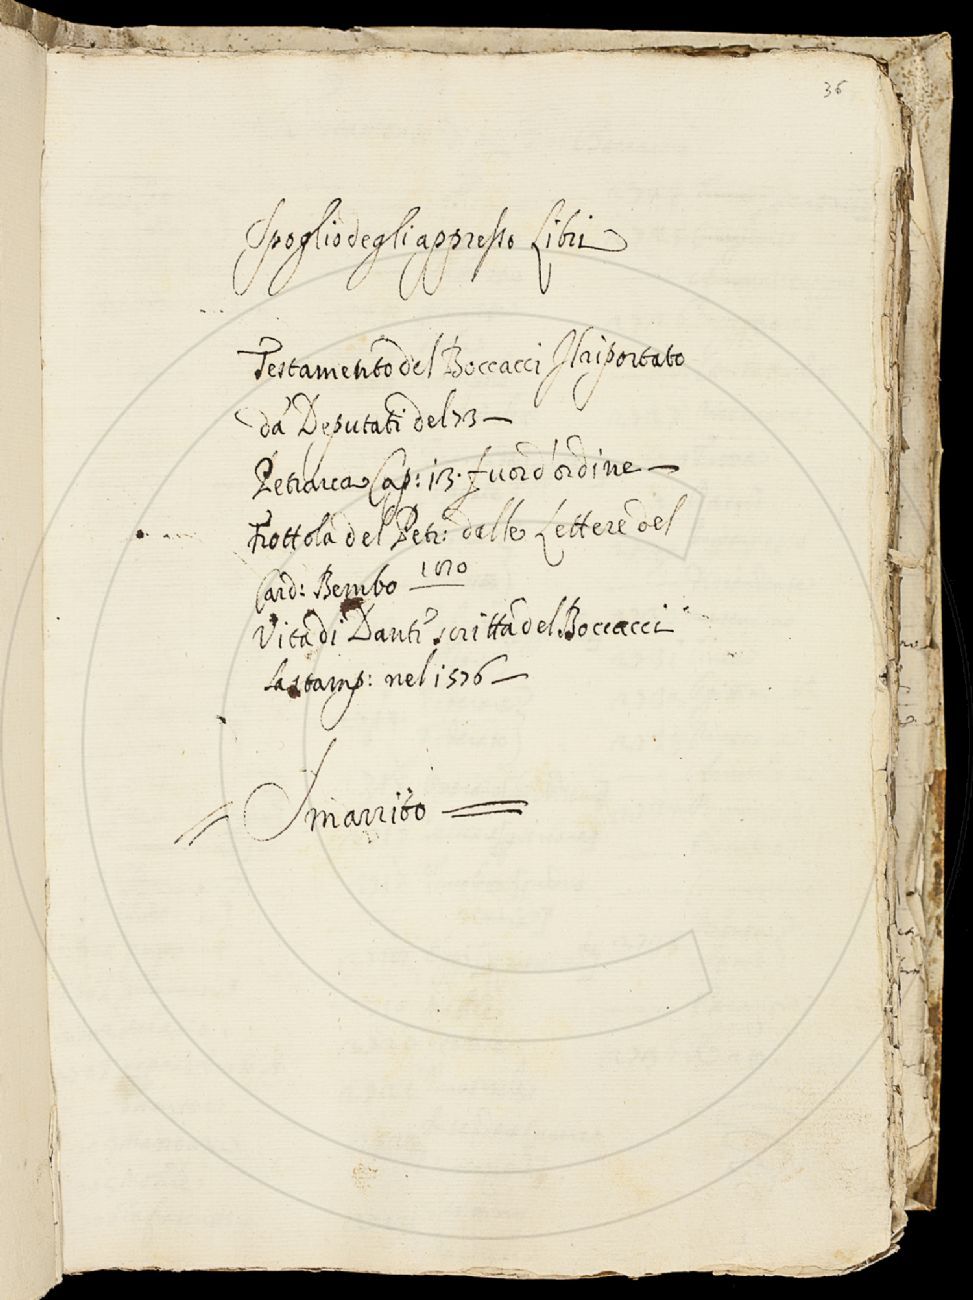 36
Spoglio degli appresso Libri
Testamento del Boccacci riportato
da' Deputati del 73
Petrarca Cap: 13. fuor d'ordine
Frottola del Petr: dalle Lettere del
Card: Bembo
Vita di Dante scritta del Boccacci
la stamp: nel 1576
Smarrito